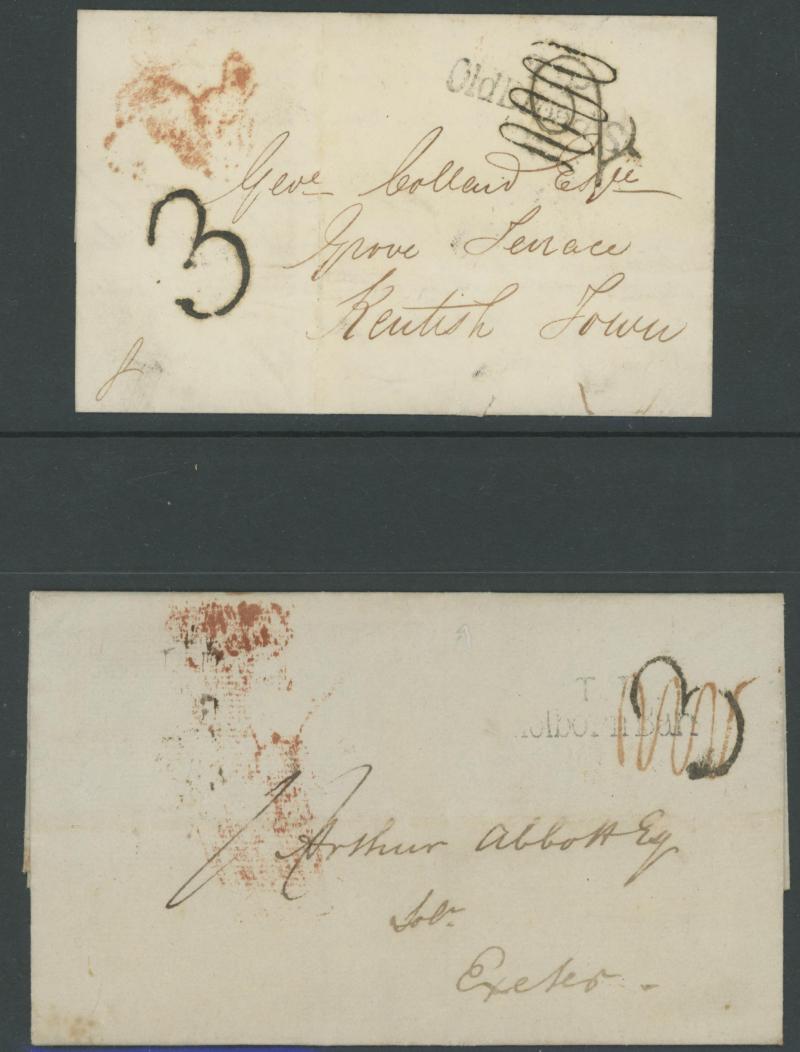 3
Geoe Collard Esqre
Grove Terrace
Kentish Town
T.P
Holborn Barr
3
Arthur Abbott Esq
Solr
Exeter